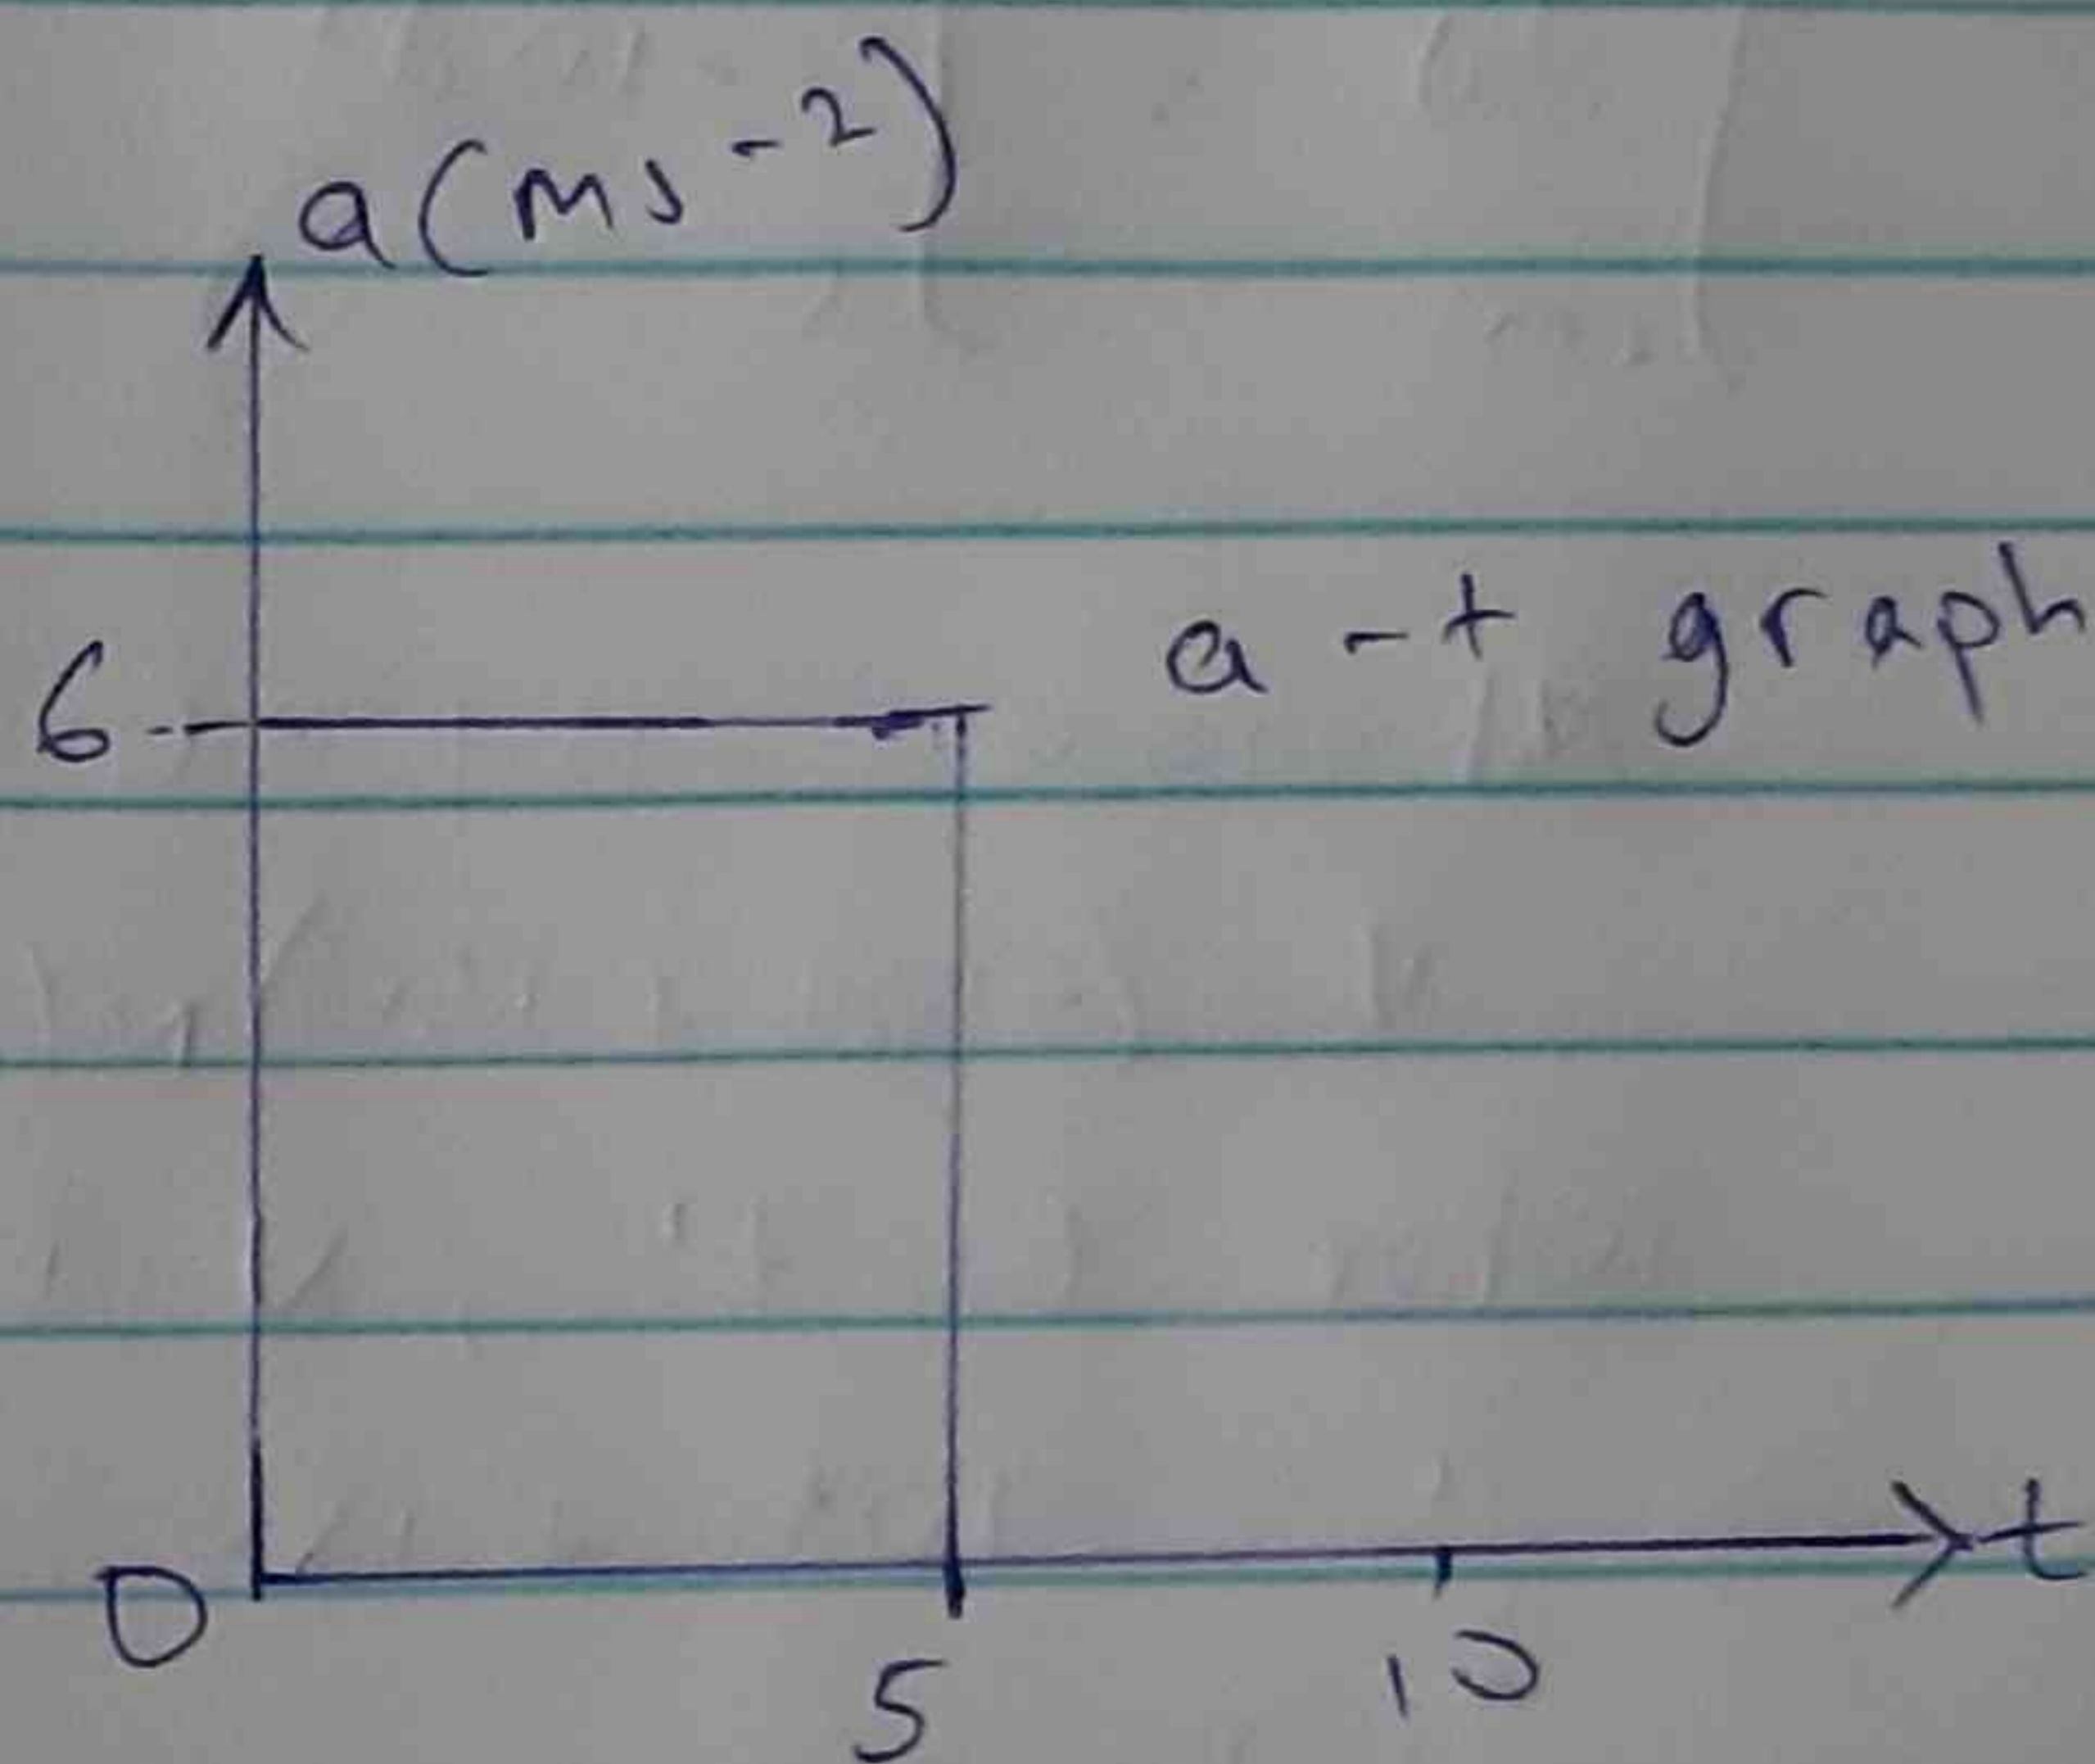 a(ms⁻²)
a-t graph
6
0
t
5
10